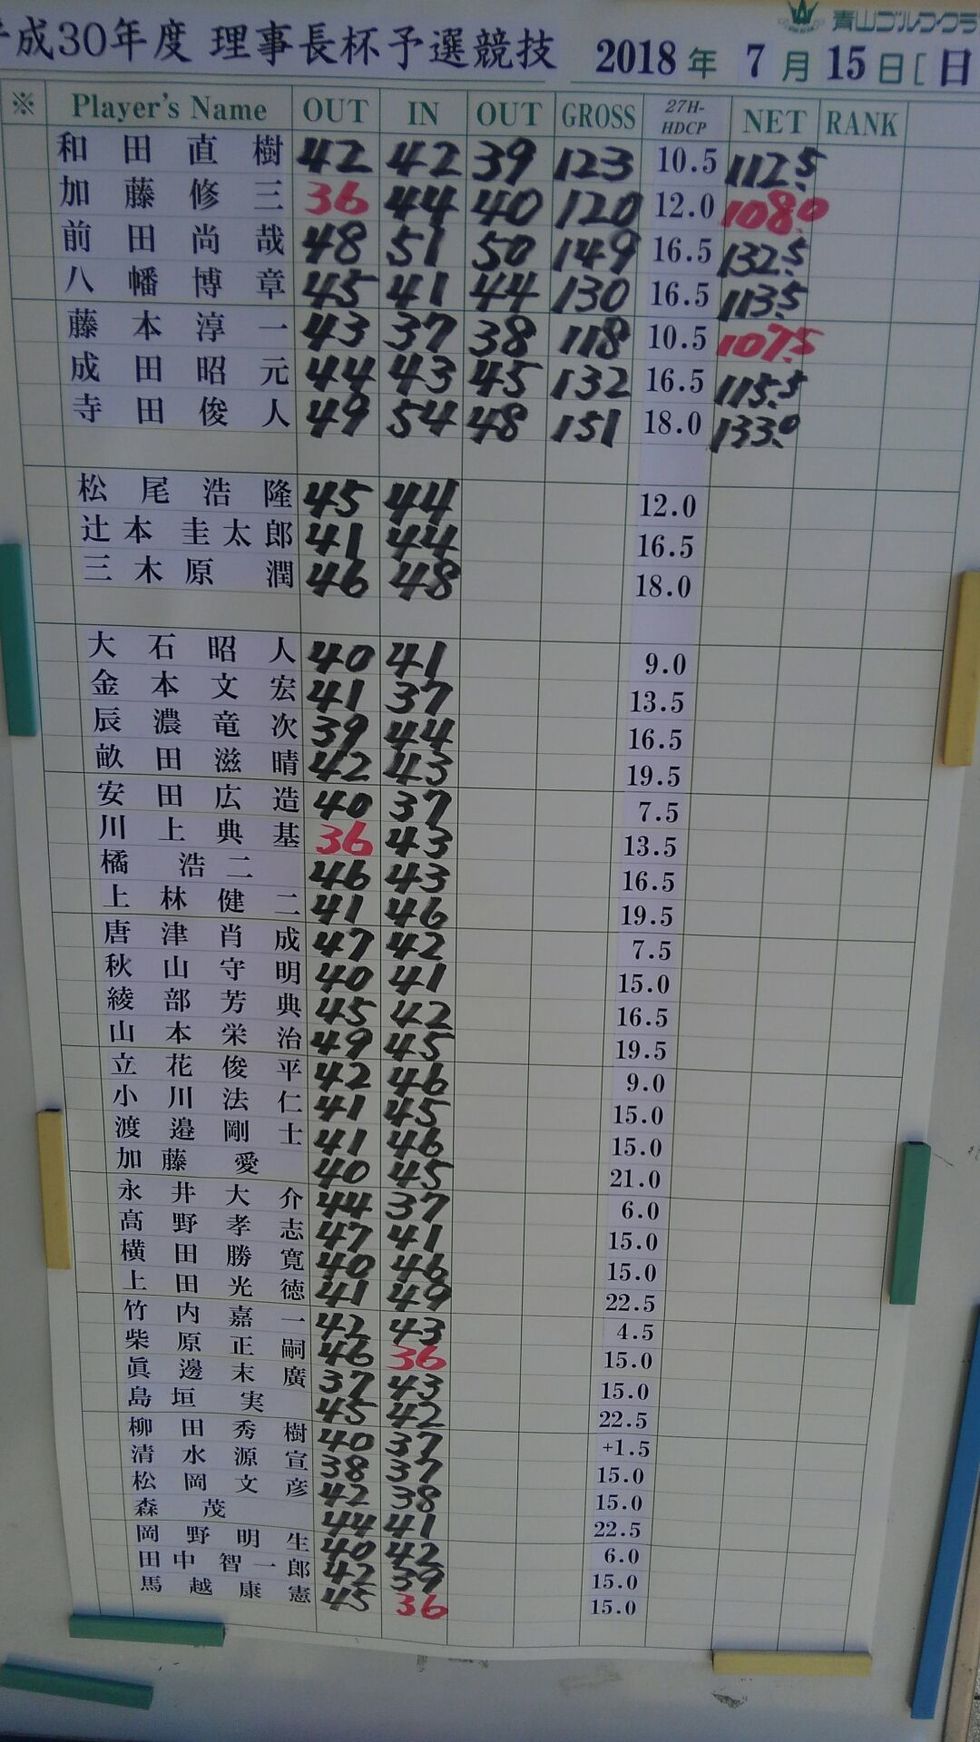 青山ゴルフクラ
成30年度 理事長杯予選競技 2018年 7月 15日[日
※ Player's Name OUT IN OUT GROSS 27H-HDCP NET RANK
和田直樹 42 42 39 123 10.5 112.5
加藤修三 36 44 40 120 12.0 108.0
前田尚哉 48 51 50 149 16.5 132.5
八幡博章 45 41 44 130 16.5 113.5
藤本淳一 43 37 38 118 10.5 107.5
成田昭元 44 43 45 132 16.5 115.5
寺田俊人 49 54 48 151 18.0 133.0
松尾浩隆 45 44 12.0
辻本圭太郎 41 44 16.5
三木原潤 46 48 18.0
大石昭人 40 41 9.0
金本文宏 41 37 13.5
辰濃竜次 39 44 16.5
畝田滋晴 42 43 19.5
安田広造 40 37 7.5
川上典基 36 43 13.5
橘浩二 46 43 16.5
上林健二 41 46 19.5
唐津肖成 47 42 7.5
秋山守明 40 41 15.0
綾部芳典 45 42 16.5
山本栄治 49 45 19.5
立花俊平 42 46 9.0
小川法仁 41 45 15.0
渡邉剛士 41 46 15.0
加藤愛 40 45 21.0
永井大介 44 37 6.0
髙野孝志 47 41 15.0
横田勝寛 40 46 15.0
上田光徳 41 49 22.5
竹内嘉一 42 43 4.5
柴原正嗣 46 36 15.0
眞邊末廣 37 43 15.0
島垣実 45 42 22.5
柳田秀樹 40 37 +1.5
清水源宣 38 37 15.0
松岡文彦 42 38 15.0
森茂 44 41 22.5
岡野明生 40 42 6.0
田中智一郎 42 39 15.0
馬越康憲 45 36 15.0